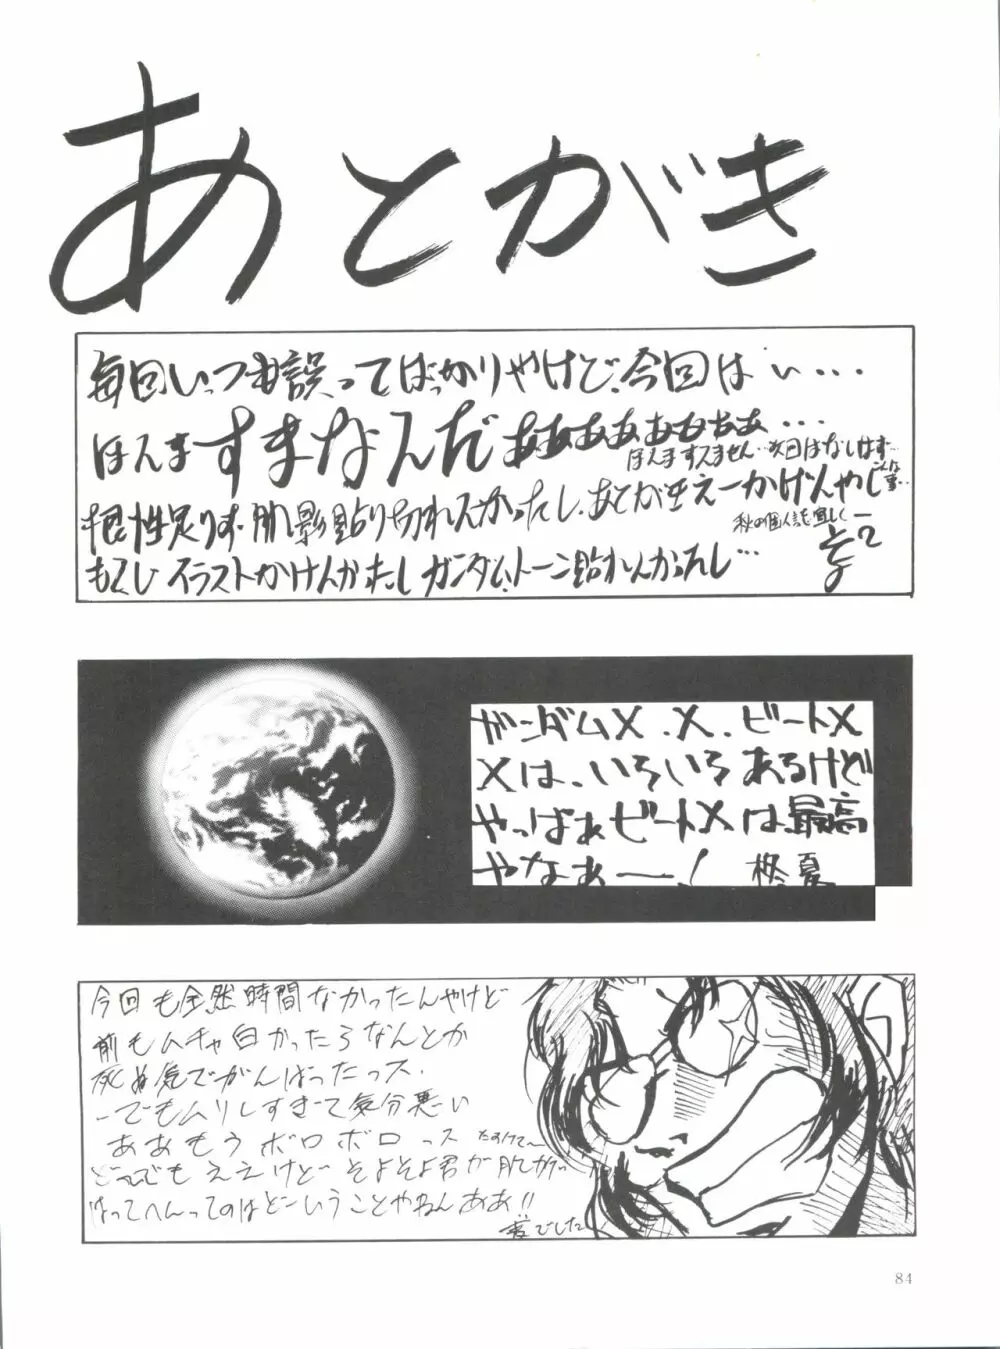 あとがき
毎回いっつも誤ってばっかりやけど、今回はい・・・
ほんますまなんだぁああああああぁ・・・
ほんますみません…次回はなしはす…
こんな事…
根性足りず、肌影貼り切れんかったし、あとがきえーかげんやし
秋の個人誌も宜しくー
もくじイラストかけんかったし ガンダム、トーン貼れんかったし…
ガンダムX.X.ビートX
Xは、いろいろあるけど
やっぱぁビートXは最高
やなぁー! 柊夏
今回も全然時間なかったんやけど
前もムチャ白かったろなんとか
死ぬ気でがんばったっス.
ーでもムリしすぎて気分悪い
ああもうボロボロっス たすけて〜
どーでもええけどそよそよ君が肌かげ
はってへんってのはどーいうことやねんああ!!
でした
84